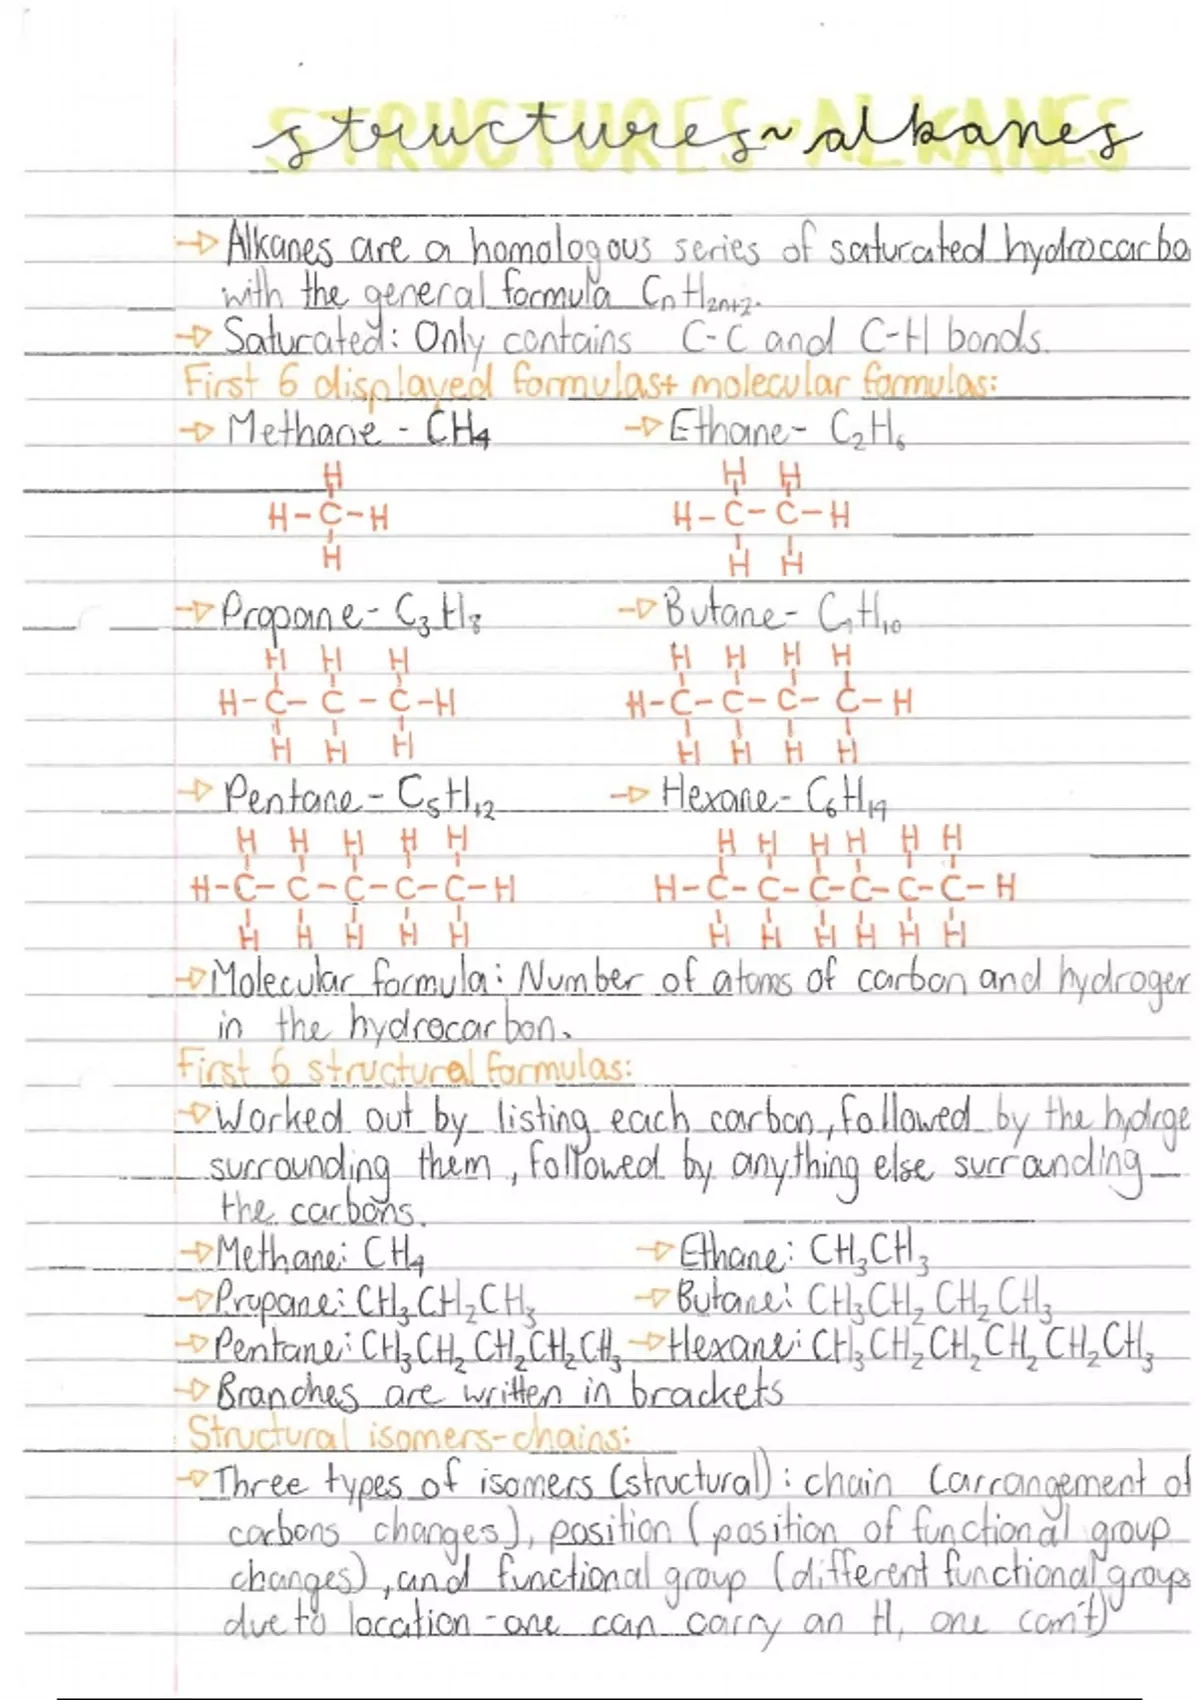 structures~alkanes
→ Alkanes are a homologous series of saturated hydrocarbo
with the general formula CnH2n+2.
→ Saturated: Only contains C-C and C-H bonds.
First 6 displayed formulas+ molecular formulas:
→ Methane - CH4 → Ethane- C2H6
H H H
H-C-H H-C-C-H
H H H
→ Propane- C3H8 → Butane- C4H10
H H H H H H H
H-C-C-C-H H-C-C-C-C-H
H H H H H H H
→ Pentane- C5H12 → Hexane- C6H14
H H H H H H H H H H H
H-C-C-C-C-C-H H-C-C-C-C-C-C-H
H H H H H H H H H H H
→ Molecular formula: Number of atoms of carbon and hydroger
in the hydrocarbon.
First 6 structural formulas:
→ Worked out by listing each carbon, followed by the hydroge
surrounding them, followed by anything else surrounding
the carbons.
→ Methane: CH4 → Ethane: CH3CH3
→ Propane: CH3CH2CH3 → Butane: CH3CH2CH2CH3
→ Pentane: CH3CH2CH2CH2CH3 → Hexane: CH3CH2CH2CH2CH2CH3
→ Branches are written in brackets
Structural isomers-chains:
→ Three types of isomers (structural): chain (arrangement of
carbons changes), position (position of functional group
changes), and functional group (different functional groups
due to location - one can carry an H, one can't)